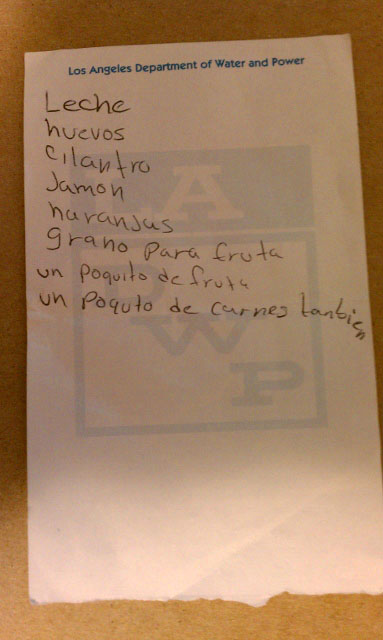 Los Angeles Department of Water and Power
Leche
huevos
Cilantro
Jamon
naranjas
grano para fruta
un poquito de fruta
un poquto de carnes tanbien
LA
DWP